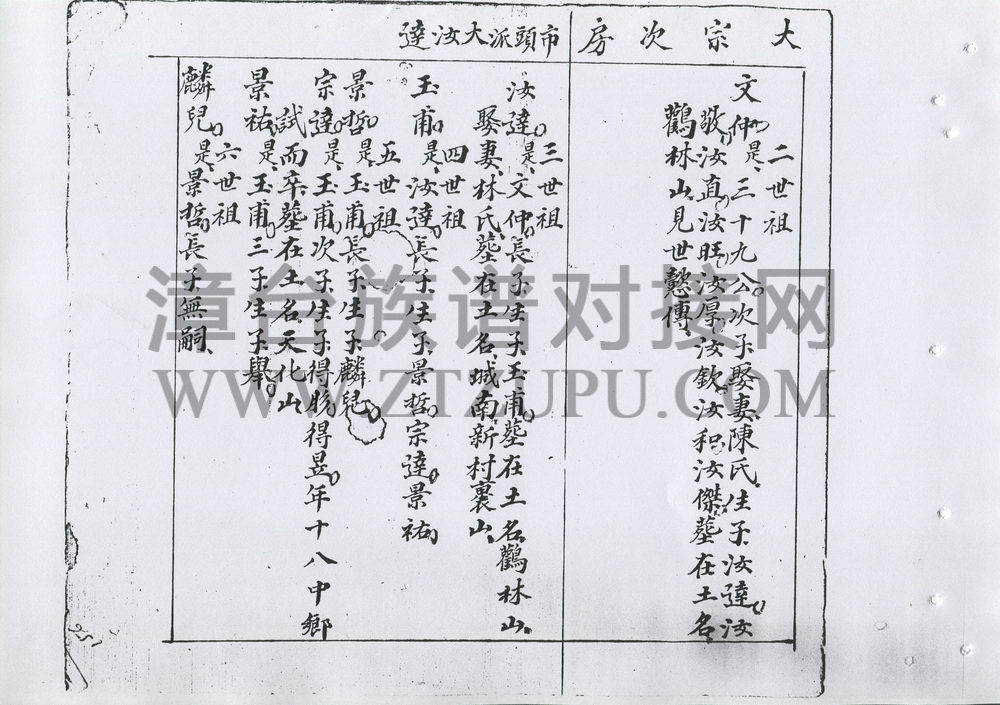 大宗次房
二世祖
文仲是三十九公次子娶妻陳氏生子汝達汝
敬汝直汝旺汝厚汝欽汝和汝傑墓在土名
鸛林山見世懿傳
市頭派大汝達
三世祖
汝達是文仲長子生子玉甫墓在土名鸛林山
娶妻林氏墓在土名城南新村裏山
四世祖
玉甫是汝達長子生子景哲宗達景祐
五世祖
景哲是玉甫長子生子麟兒
宗達是玉甫次子生子得賜得昱年十八中鄉
試而卒墓在土名天化山
景祐是玉甫三子生子舉
六世祖
麟兒是景哲長子無嗣
漳台族谱对接网
WWW.ZTZUPU.COM